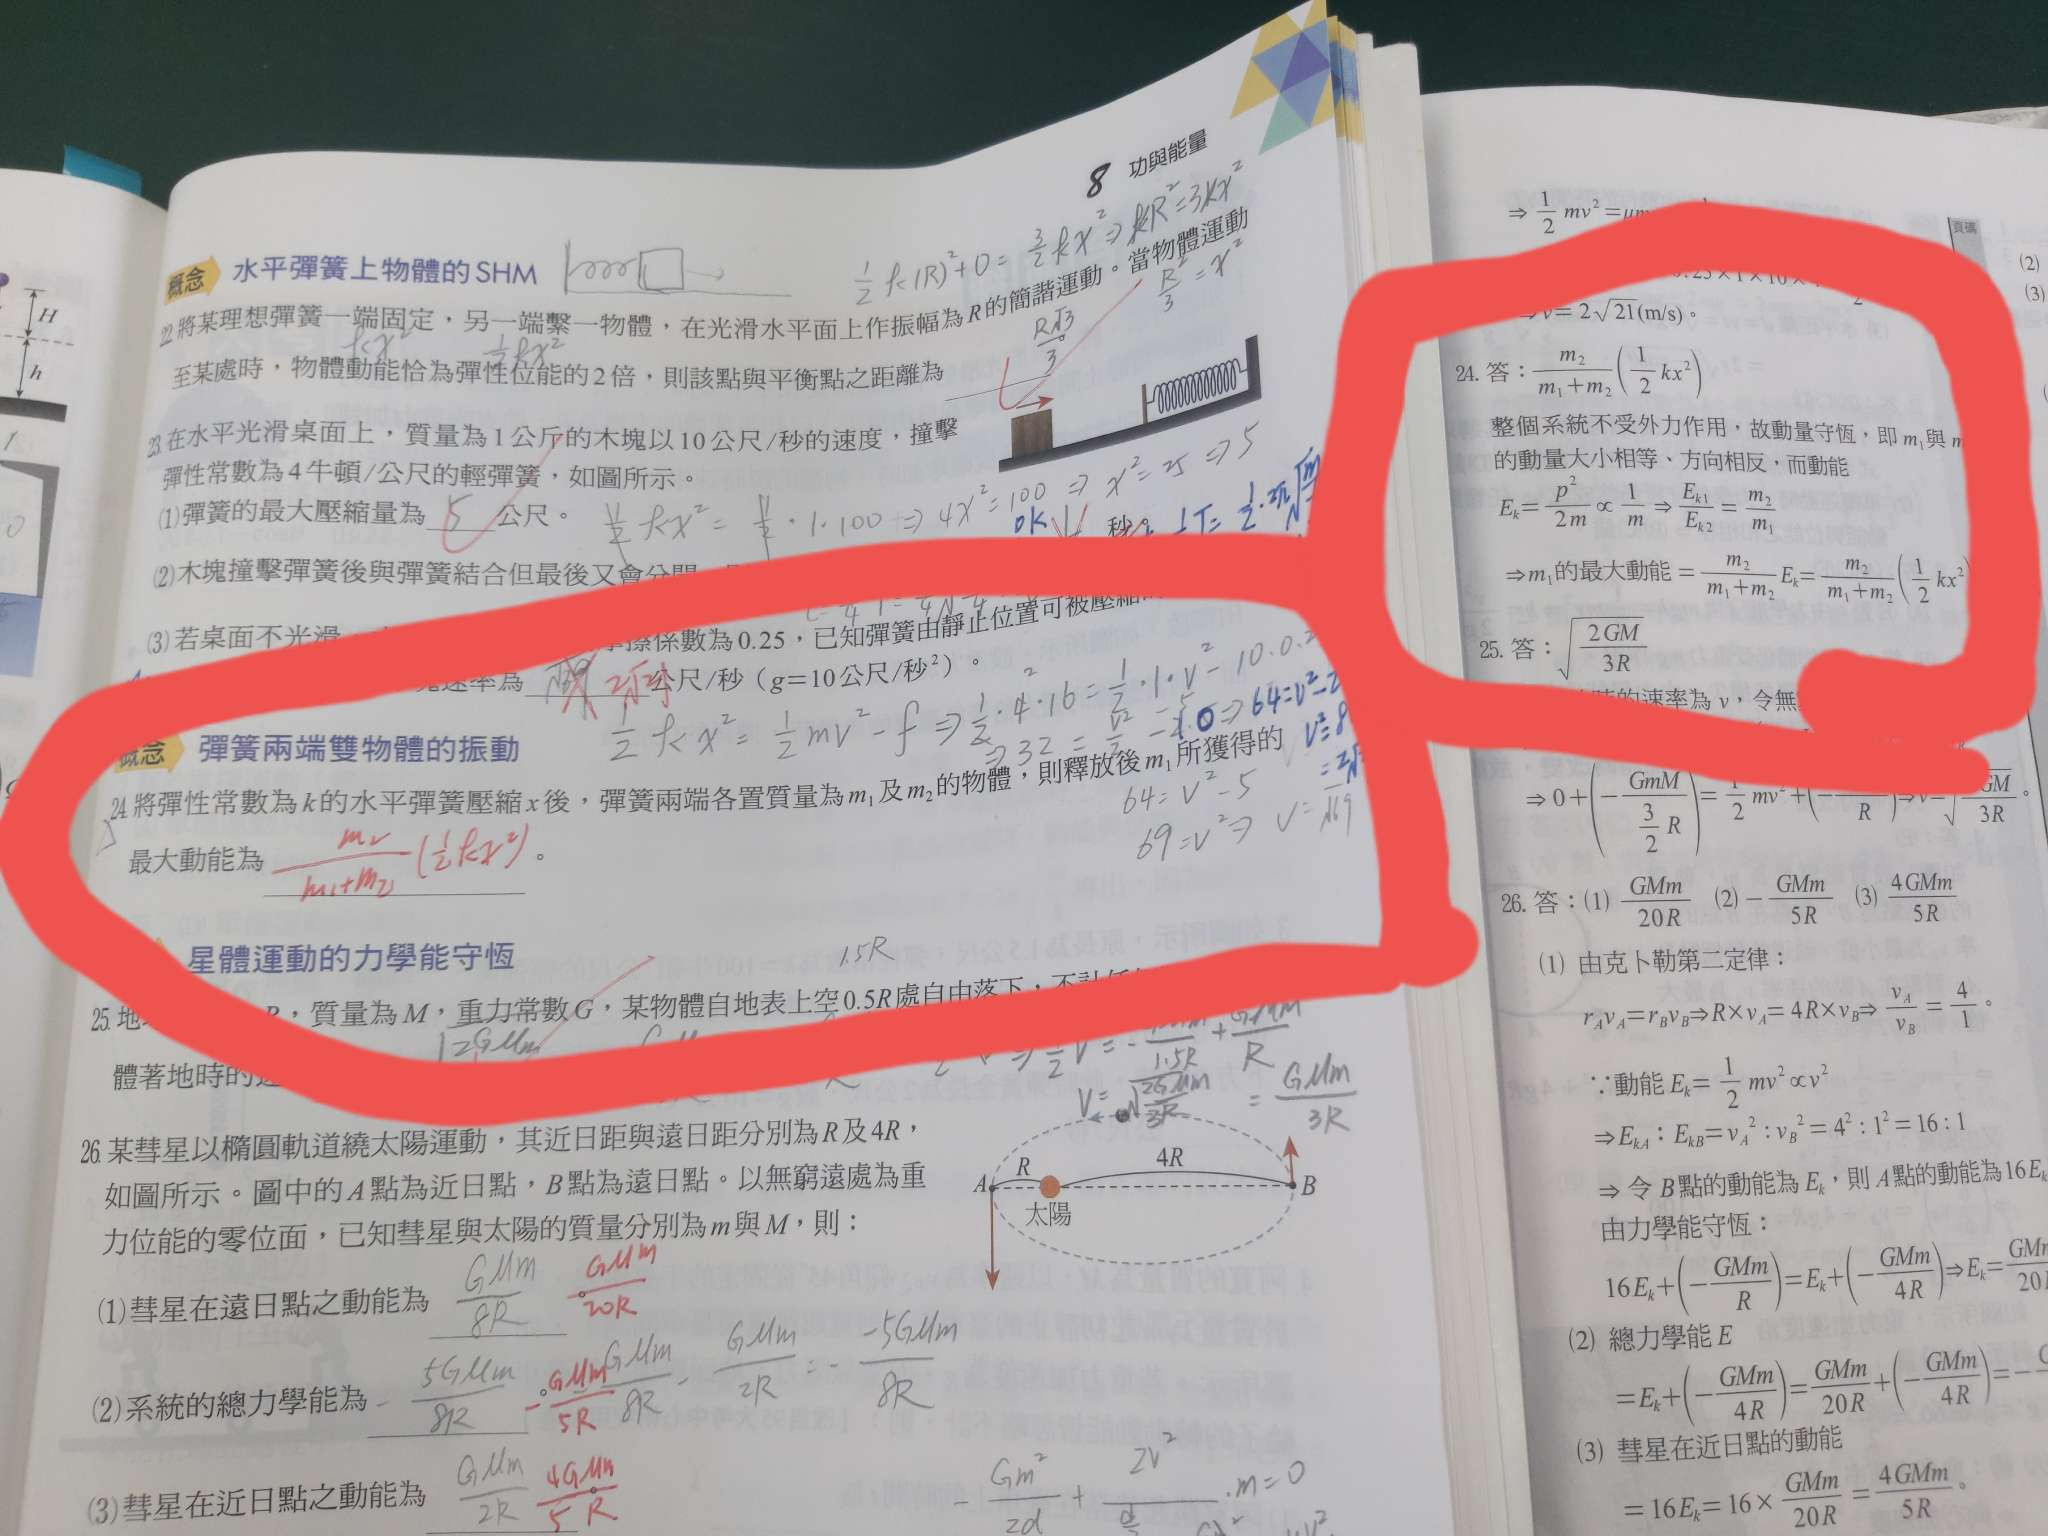 8 功與能量
概念 水平彈簧上物體的SHM
½k(R)²+0=3/2kx²⇒kR²=3kx²
R²/3=x²
22.將某理想彈簧一端固定,另一端繫一物體,在光滑水平面上作振幅為R的簡諧運動。當物體運動
kx² ½kx²
至某處時,物體動能恰為彈性位能的2倍,則該點與平衡點之距離為 R√3/3
23.在水平光滑桌面上,質量為1公斤的木塊以10公尺/秒的速度,撞擊
彈性常數為4牛頓/公尺的輕彈簧,如圖所示。
(1)彈簧的最大壓縮量為 5 公尺。 ½kx²=½·1·100⇒4x²=100⇒x²=25⇒5
(2)木塊撞擊彈簧後與彈簧結合但最後又會分開 OK 秒。
(3)若桌面不光滑 擦係數為0.25,已知彈簧由靜止位置可被壓縮
速率為 2√21 公尺/秒(g=10公尺/秒²)。
½kx²=½mv²-f⇒½·4·16=½·1·v²-10·0.2
64=v²-5
69=v²⇒v=√69
概念 彈簧兩端雙物體的振動
24.將彈性常數為k的水平彈簧壓縮x後,彈簧兩端各置質量為m₁及m₂的物體,則釋放後m₁所獲得的
最大動能為 m₂/(m₁+m₂)(½kx²)。
星體運動的力學能守恆
1.5R
25.地 R,質量為M,重力常數G,某物體自地表上空0.5R處自由落下,不計
體著地時的
V=√(2GMm/3R) =GMm/3R
26.某彗星以橢圓軌道繞太陽運動,其近日距與遠日距分別為R及4R,
如圖所示。圖中的A點為近日點,B點為遠日點。以無窮遠處為重
力位能的零位面,已知彗星與太陽的質量分別為m與M,則:
A R 太陽 4R B
(1)彗星在遠日點之動能為 GMm/8R。 GMm/20R
(2)系統的總力學能為 -5GMm/8R。 -GMm/5R GMm/8R-GMm/2R=-5GMm/8R
(3)彗星在近日點之動能為 GMm/2R。 4GMm/5R
H
h
頁碼
⇒v=2√21(m/s)。
24. 答:m₂/(m₁+m₂)(½kx²)
整個系統不受外力作用,故動量守恆,即m₁與m
的動量大小相等、方向相反,而動能
Eₖ=p²/2m∝1/m⇒Eₖ₁/Eₖ₂=m₂/m₁
⇒m₁的最大動能=m₂/(m₁+m₂)Eₖ=m₂/(m₁+m₂)(½kx²)
25. 答:√(2GM/3R)
時的速率為v,令無
⇒0+(-GmM/(3/2 R))=½mv²+(-
26. 答:(1) GMm/20R (2) -GMm/5R (3) 4GMm/5R
(1) 由克卜勒第二定律:
r_A v_A=r_B v_B⇒R×v_A=4R×v_B⇒v_A/v_B=4/1。
∵動能Eₖ=½mv²∝v²
⇒E_kA:E_kB=v_A²:v_B²=4²:1²=16:1
⇒令B點的動能為Eₖ,則A點的動能為16Eₖ
由力學能守恆:
16Eₖ+(-GMm/R)=Eₖ+(-GMm/4R)⇒Eₖ=GMm/20R
(2) 總力學能E
=Eₖ+(-GMm/4R)=GMm/20R+(-GMm/4R)=-
(3) 彗星在近日點的動能
=16Eₖ=16×GMm/20R=4GMm/5R。